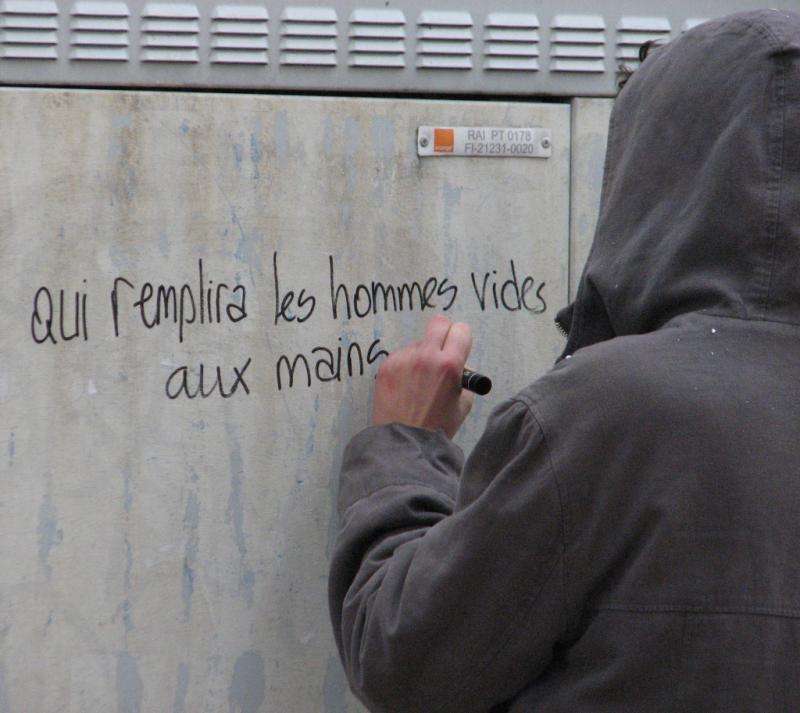 RAI PT 0178
orange
FI-21231-0020
qui remplira les hommes vides
aux mains